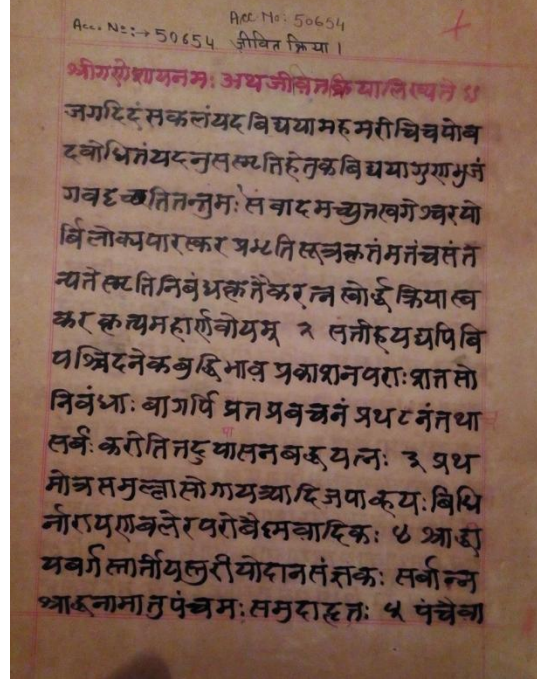 Acc No: 50654
Acc. No:→ 50654 जीवित क्रिया।
श्रीगणेशायनमः अथजीवितक्रियालिख्यते ॥
जगदिदंसकलंयदबिद्ययामहमरीचिचयोब
दबोधितंयदनुसस्मृतिहेतुकबिद्ययागुणभुजं
गवद्
संवादमच्युतखगेश्वरयो
र्बिलोक्यपारस्कर प्रभृतिसूत्रकृतंमतंचसंत
न्यतेस्मृतिनिबंधकृतैकरत्न क्रियास्व
करकृत्यमहार्णवोयम् २ संतीहयद्यपिबि
पश्चिदनेकबुद्धिभाव प्रकाशनपराःशतसो
निबंधाः बागर्षि प्रवचनं तथा
सर्बः करोतितदुपासनबद्धयत्नः ३ प्रथ
मोत्रसमुल्लासोगायत्र्यादिजपाह्वयःबिधि
र्नारायणबलेरपरोबैश्मबादिकः ४ श्राद्धी
यबर्गस्तार्तीयस्तुरीयोदानसंज्ञकः सर्बान्न
श्राद्धनामातुपंचमःसमुदाहृतः ५ पंचैबा